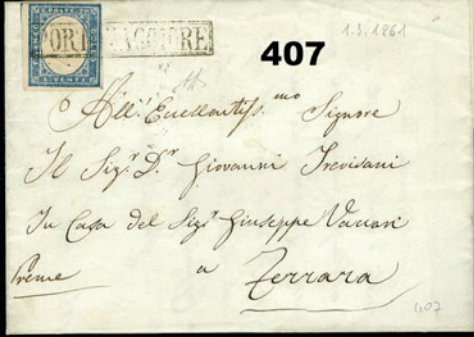 PORTOMAGGIORE
1.3.1861
407
All.' Eccellentiss.mo Signore
Il Sig.r D.r Giovanni Trevisani
In Casa del Sig.r Giuseppe Vaccari
Preme a Ferrara
407